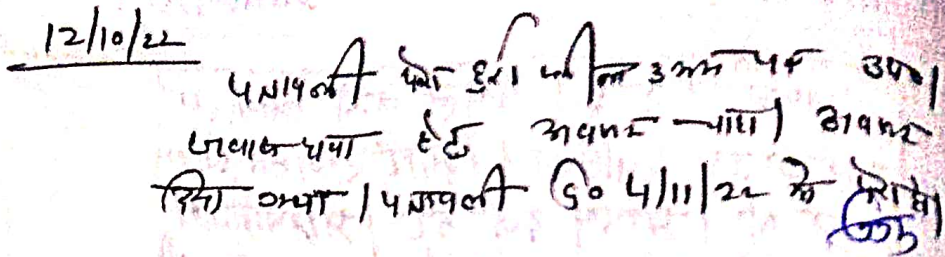 12/10/22
पत्रावली पेश हुई। वकील उभय पक्ष उप०।
जवाब दावा हेतु अवसर चाहा। अवसर
दिया गया। पत्रावली दि० 4/11/22 को पेश हो।